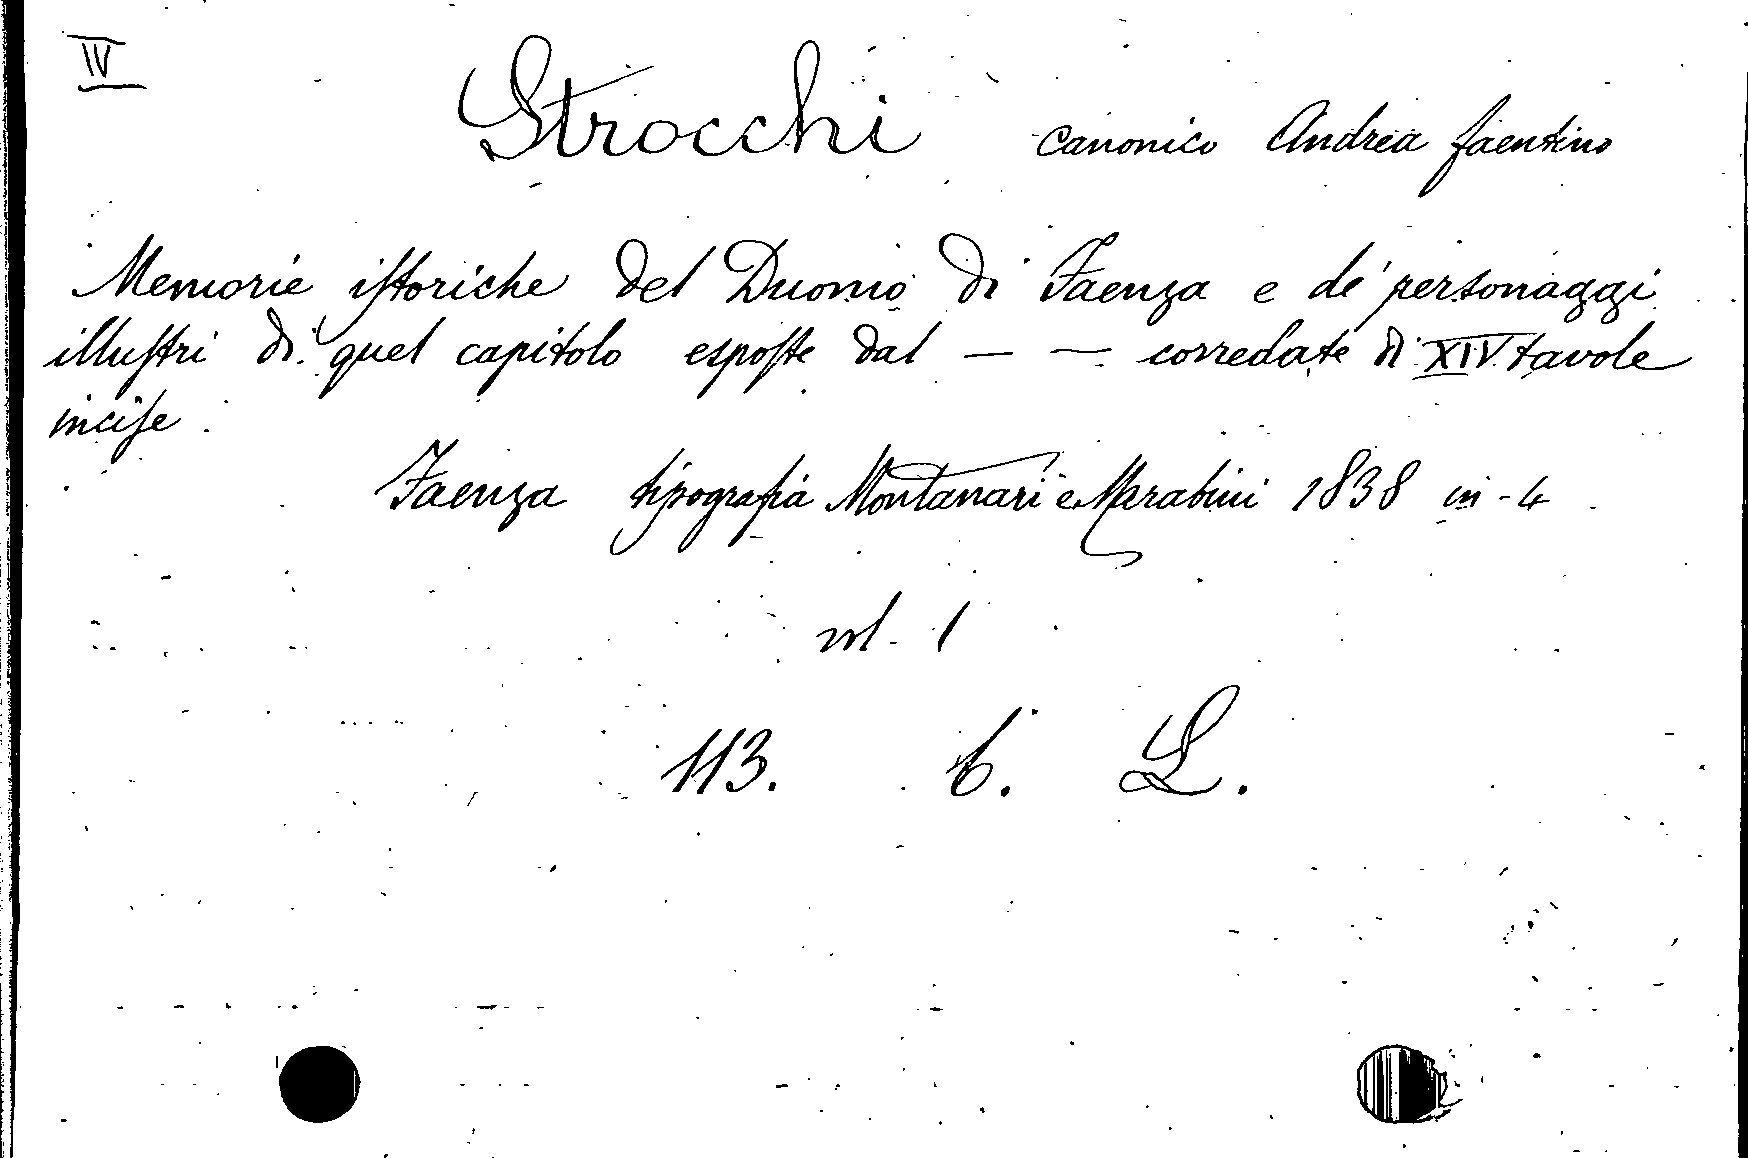 IV
Strocchi canonico Andrea faentino
Memorie istoriche del Duomo di Faenza e de' personaggi
illustri di quel capitolo esposte dal — — corredate di XIV tavole
incise.
Faenza tipografia Montanari e Marabini 1838 in-4
vol. 1
113. 6. L.